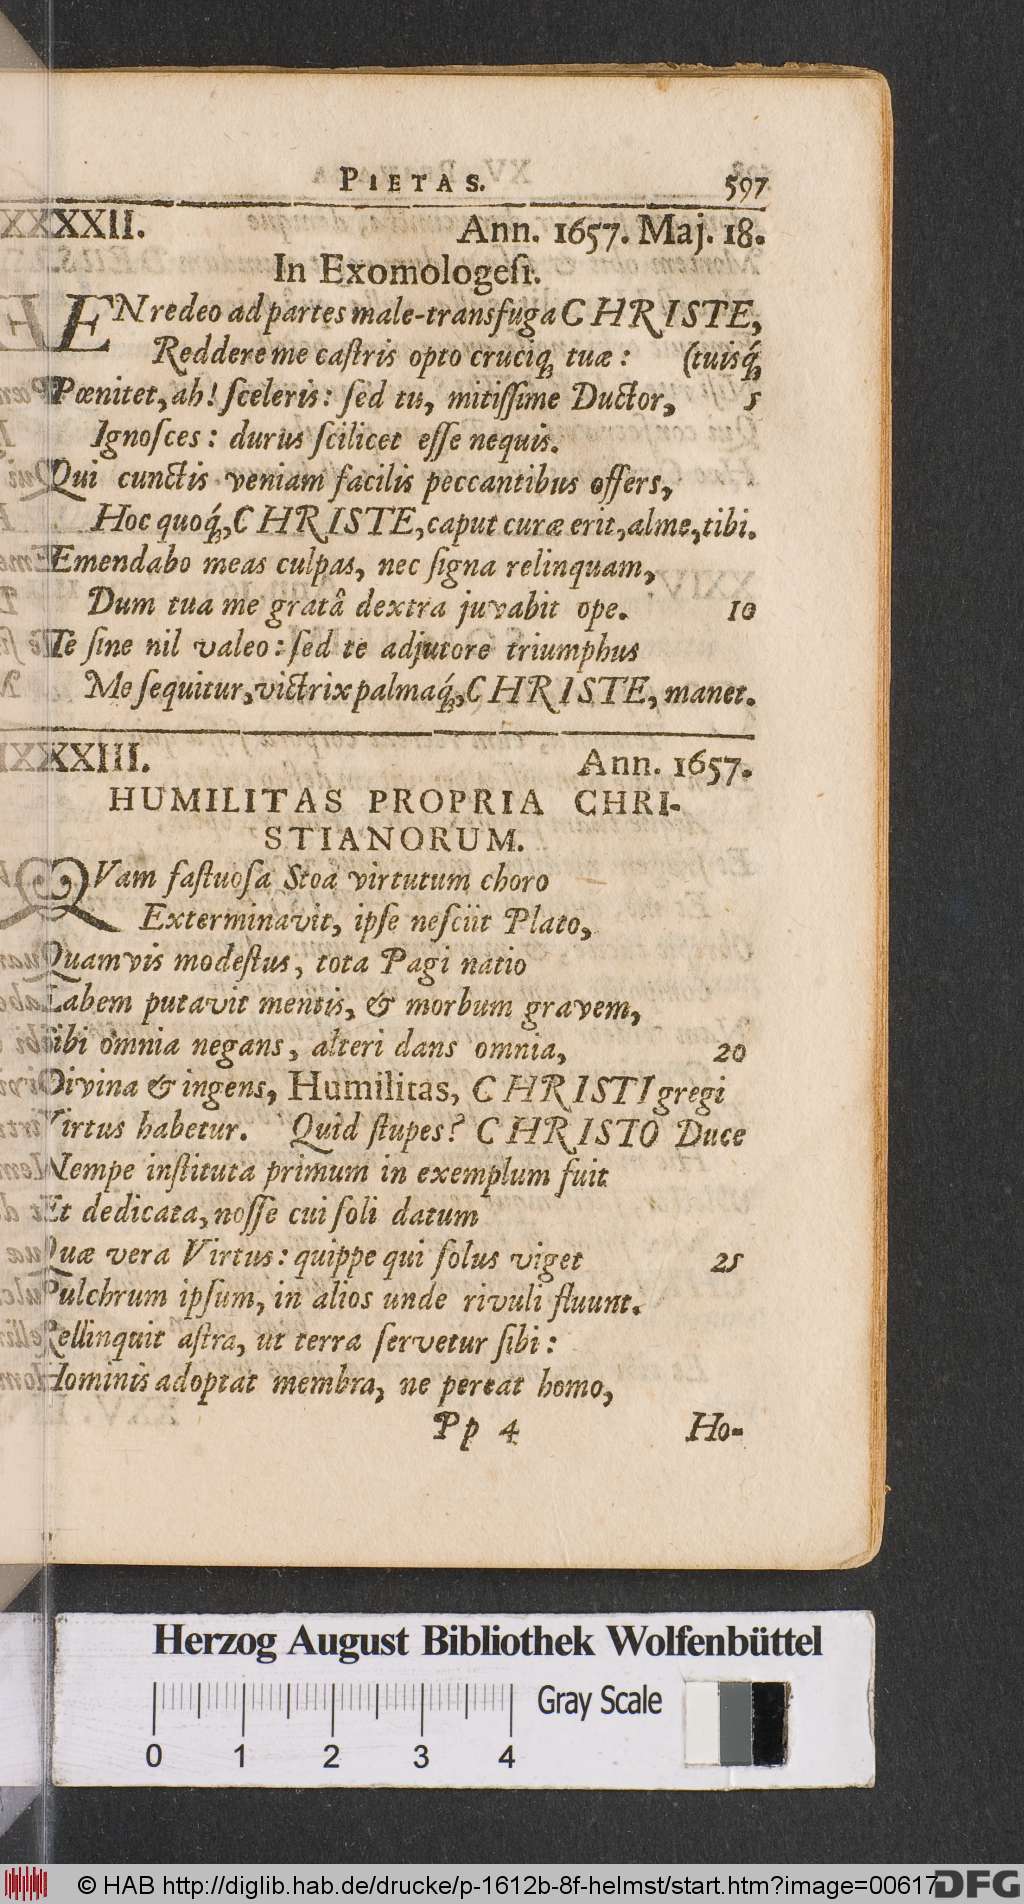 PIETAS. 597
XXXXII. Ann. 1657. Maj. 18.
In Exomologeſi.
EN redeo ad partes male-transfuga CHRISTE,
Reddere me caſtris opto cruciq́; tuæ: (tuisq́;
Pœnitet, ah! ſceleris: ſed tu, mitiſſime Ductor, 5
Ignoſces: durus ſcilicet eſſe nequis.
Qui cunctis veniam facilis peccantibus offers,
Hoc quoq́;, CHRISTE, caput curæ erit, alme, tibi.
Emendabo meas culpas, nec ſigna relinquam,
Dum tua me gratâ dextra juvabit ope. 10
Te ſine nil valeo: ſed te adjutore triumphus
Me ſequitur, victrix palmaq́;, CHRISTE, manet.
XXXIII. Ann. 1657.
HUMILITAS PROPRIA CHRI-
STIANORUM.
QVam faſtuoſa Stoa virtutum choro
Exterminavit, ipſe neſciit Plato,
Quamvis modeſtus, tota Pagi natio
Labem putavit mentis, & morbum gravem,
Sibi omnia negans, alteri dans omnia, 20
Divina & ingens, Humilitas, CHRISTI gregi
Virtus habetur. Quid ſtupes? CHRISTO Duce
Nempe inſtituta primum in exemplum fuit
Et dedicata, noſſe cui ſoli datum
Quæ vera Virtus: quippe qui ſolus viget 25
Pulchrum ipſum, in alios unde rivuli fluunt.
Rellinquit aſtra, ut terra ſervetur ſibi:
Hominis adoptat membra, ne pereat homo,
Pp 4 Ho-
Herzog August Bibliothek Wolfenbüttel
Gray Scale
0 1 2 3 4
© HAB http://diglib.hab.de/drucke/p-1612b-8f-helmst/start.htm?image=00617
DFG